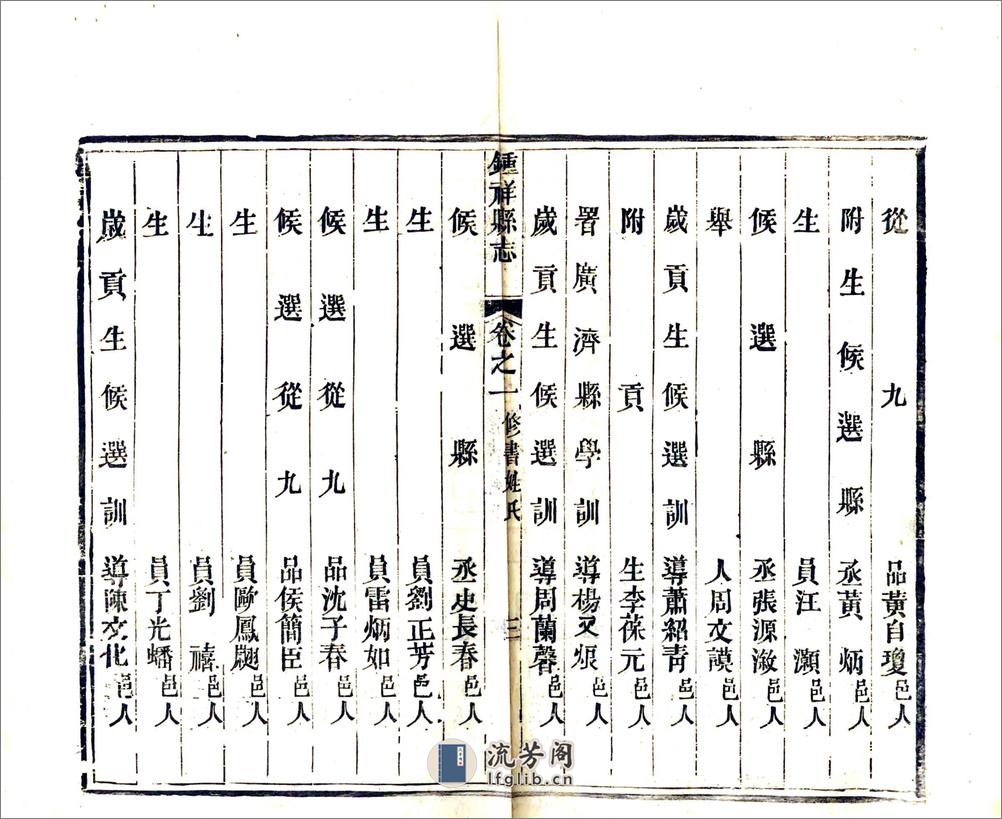 從九品黃自瓊邑人
附生候選縣丞黃炳邑人
生員汪灝邑人
候選縣丞張源潡邑人
舉人周文謨邑人
歲貢生候選訓導蕭紹青邑人
附貢生李葆元邑人
署廣濟縣學訓導楊又烺邑人
歲貢生候選訓導周蘭馨邑人
鍾祥縣志
卷之一
修書姓氏
三
候選縣丞史長春邑人
生員劉正芳邑人
生員雷炳如邑人
候選從九品沈子春邑人
候選從九品侯簡臣邑人
生員歐鳳邑人
生員劉禧邑人
生員丁光蟠邑人
歲貢生候選訓導陳文化邑人
流芳阁
lfglib.cn